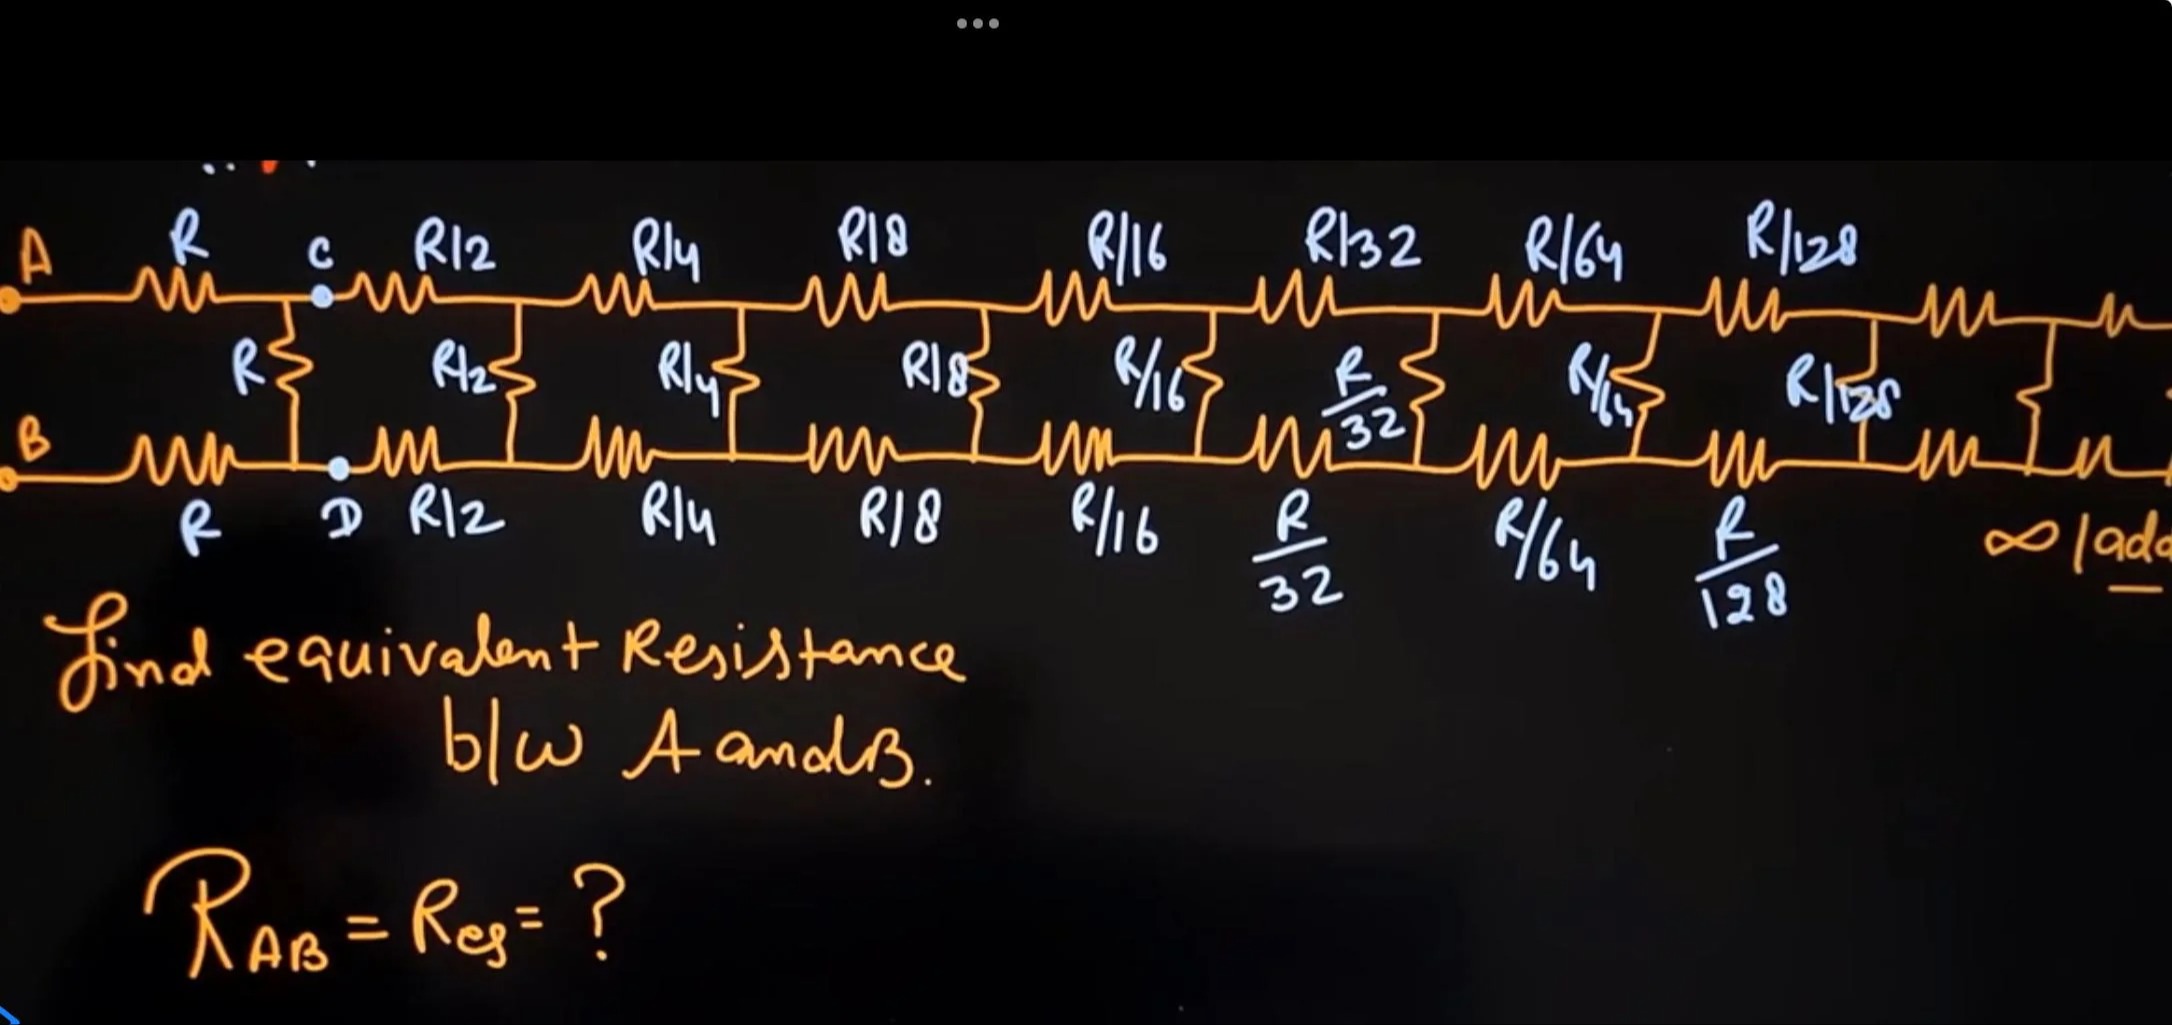 A R C R/2 R/4 R/8 R/16 R/32 R/64 R/128
R R/2 R/4 R/8 R/16 R/32 R/64 R/128
B R D R/2 R/4 R/8 R/16 R/32 R/64 R/128
∞ lada
find equivalent Resistance
b/w A and B.
R_AB = Req = ?